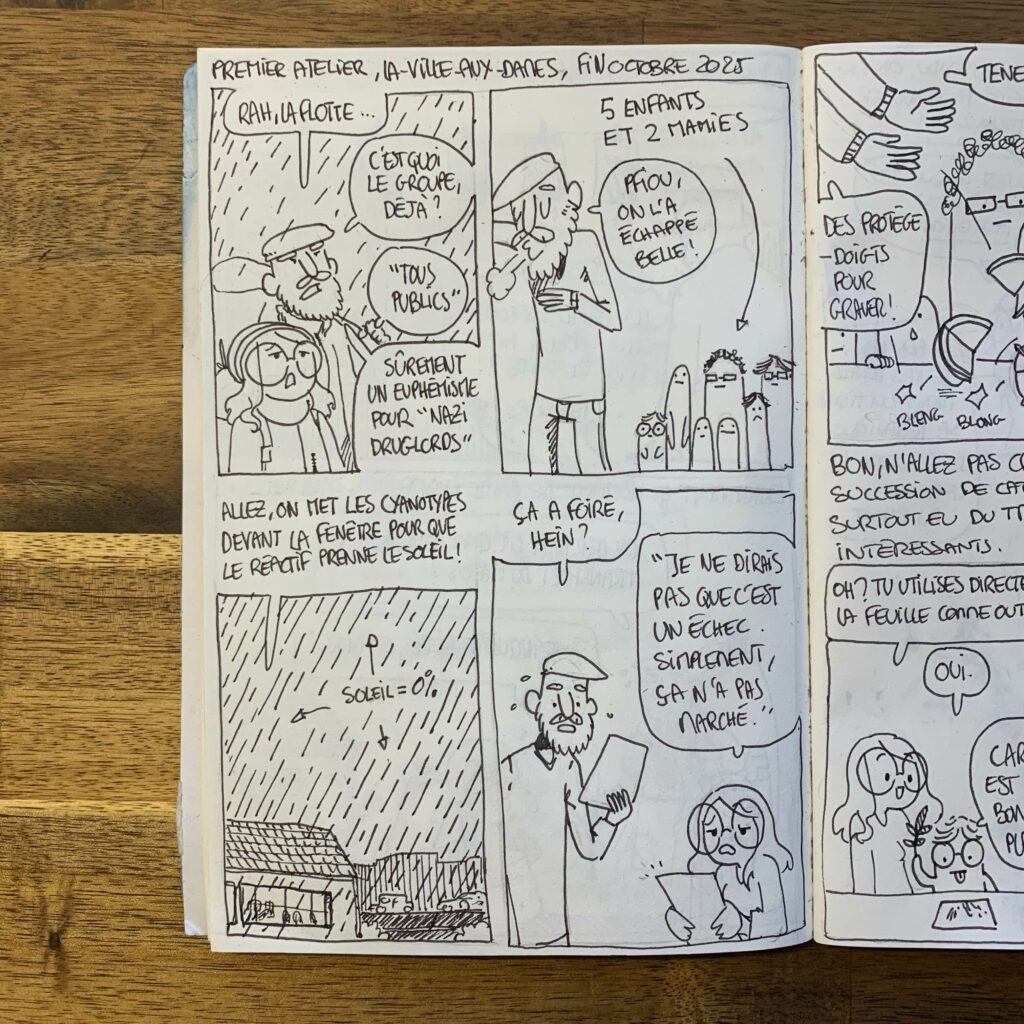 PREMIER ATELIER, LA-VILLE-AUX-DAMES, FIN OCTOBRE 2025
RAH, LA FLOTTE...
C'EST QUOI
LE GROUPE,
DÉJÀ ?
"TOUS
PUBLICS"
SÛREMENT
UN EUPHÉMISME
POUR "NAZI
DRUGLORDS"
5 ENFANTS
ET 2 MAMIES
PFIOU,
ON L'A
ÉCHAPPÉ
BELLE !
ALLEZ, ON MET LES CYANOTYPES
DEVANT LA FENÊTRE POUR QUE
LE RÉACTIF PRENNE LE SOLEIL !
SOLEIL = 0%
ÇA A FOIRÉ,
HEIN ?
"JE NE DIRAIS
PAS QUE C'EST
UN ÉCHEC.
SIMPLEMENT,
ÇA N'A PAS
MARCHÉ."
TENE
DES PROTÈGE
-DOIGTS
POUR
GRAVER !
BLENG BLONG
BON, N'ALLEZ PAS
SUCCESSION DE
SURTOUT EU DU
INTÉRESSANTS.
OH ? TU UTILISES DIRECTE
LA FEUILLE COMME OUT
OUI.
CAR
EST
BON
PU